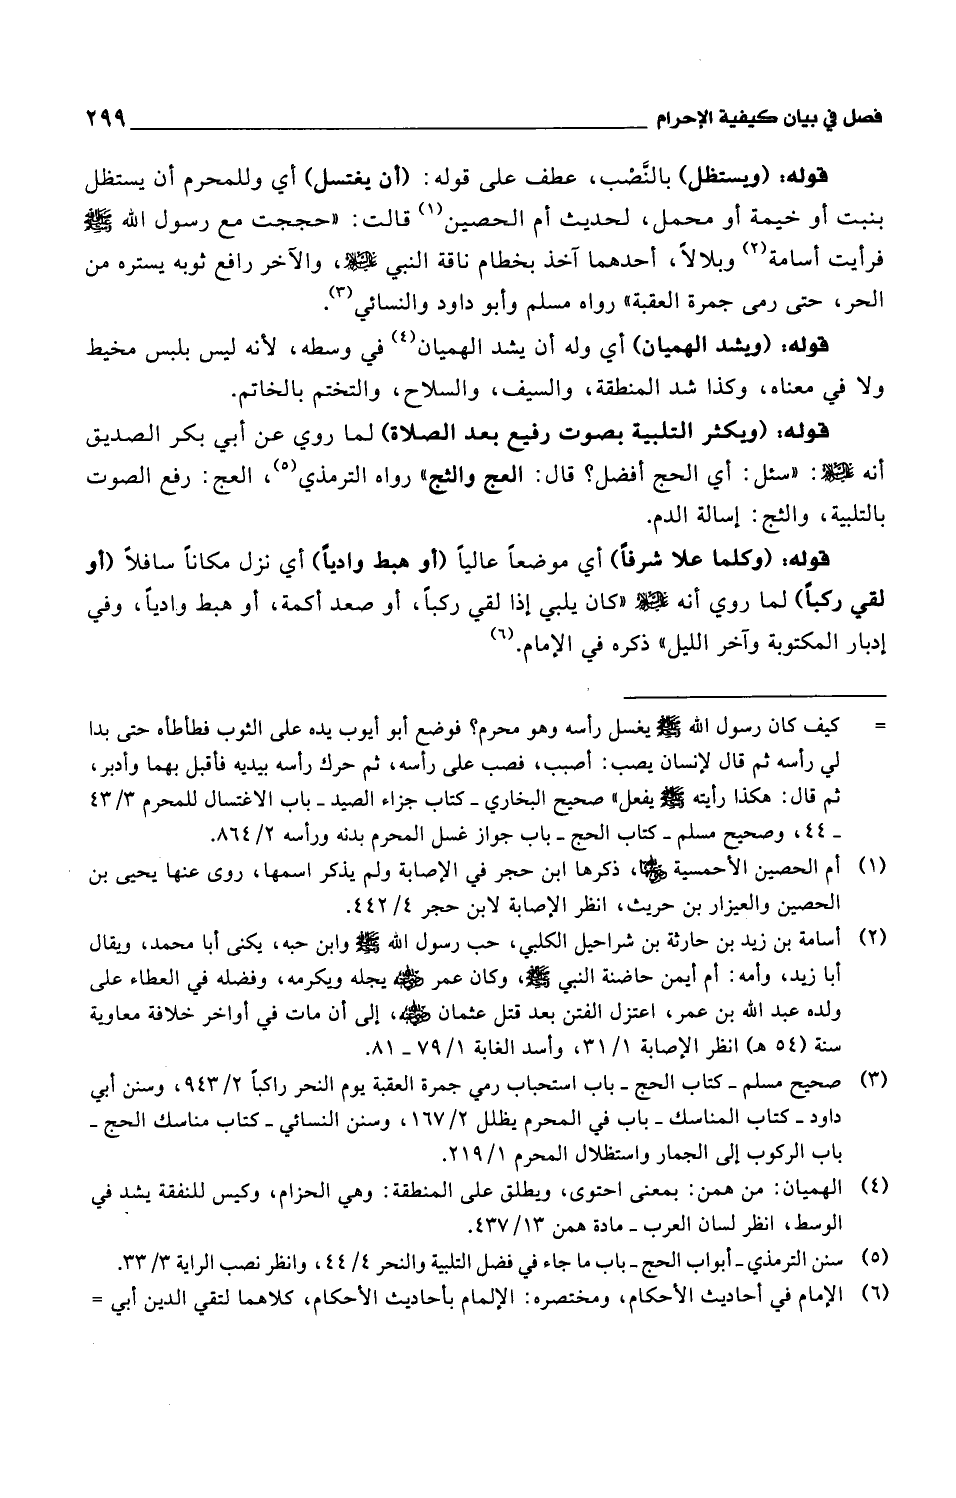 فصل في بيان كيفية الإحرام ٢٩٩
قوله: (ويستظل) بالنَّصْب، عطف على قوله: (أن يغتسل) أي وللمحرم أن يستظل
بنبت أو خيمة أو محمل، لحديث أم الحصين(١) قالت: «حججت مع رسول الله ﷺ
فرأيت أسامة(٢) وبلالاً، أحدهما آخذ بخطام ناقة النبي ﷺ، والآخر رافع ثوبه يستره من
الحر، حتى رمى جمرة العقبة» رواه مسلم وأبو داود والنسائي(٣).
قوله: (ويشد الهميان) أي وله أن يشد الهميان(٤) في وسطه، لأنه ليس بلبس مخيط
ولا في معناه، وكذا شد المنطقة، والسيف، والسلاح، والتختم بالخاتم.
قوله: (ويكثر التلبية بصوت رفيع بعد الصلاة) لما روي عن أبي بكر الصديق
أنه ﷺ: «سئل: أي الحج أفضل؟ قال: العج والثج» رواه الترمذي(٥)، العج: رفع الصوت
بالتلبية، والثج: إسالة الدم.
قوله: (وكلما علا شرفاً) أي موضعاً عالياً (أو هبط وادياً) أي نزل مكاناً سافلاً (أو
لقي ركباً) لما روي أنه ﷺ «كان يلبي إذا لقي ركباً، أو صعد أكمة، أو هبط وادياً، وفي
إدبار المكتوبة وآخر الليل» ذكره في الإمام.(٦)
= كيف كان رسول الله ﷺ يغسل رأسه وهو محرم؟ فوضع أبو أيوب يده على الثوب فطأطأه حتى بدا
لي رأسه ثم قال لإنسان يصب: أصبب، فصب على رأسه، ثم حرك رأسه بيديه فأقبل بهما وأدبر،
ثم قال: هكذا رأيته ﷺ يفعل» صحيح البخاري ـ كتاب جزاء الصيد ـ باب الاغتسال للمحرم ٤٣/٣
ـ ٤٤، وصحيح مسلم ـ كتاب الحج ـ باب جواز غسل المحرم بدنه ورأسه ٨٦٤/٢.
(١) أم الحصين الأحمسية رضي الله عنها، ذكرها ابن حجر في الإصابة ولم يذكر اسمها، روى عنها يحيى بن
الحصين والعيزار بن حريث، انظر الإصابة لابن حجر ٤٤٢/٤.
(٢) أسامة بن زيد بن حارثة بن شراحيل الكلبي، حب رسول الله ﷺ وابن حبه، يكنى أبا محمد، ويقال
أبا زيد، وأمه: أم أيمن حاضنة النبي ﷺ، وكان عمر رضي الله عنه يجله ويكرمه، وفضله في العطاء على
ولده عبد الله بن عمر، اعتزل الفتن بعد قتل عثمان رضي الله عنه، إلى أن مات في أواخر خلافة معاوية
سنة (٥٤ هـ) انظر الإصابة ٣١/١، وأسد الغابة ٧٩/١ ـ ٨١.
(٣) صحيح مسلم ـ كتاب الحج ـ باب استحباب رمي جمرة العقبة يوم النحر راكباً ٩٤٣/٢، وسنن أبي
داود ـ كتاب المناسك ـ باب في المحرم يظلل ١٦٧/٢، وسنن النسائي ـ كتاب مناسك الحج ـ
باب الركوب إلى الجمار واستظلال المحرم ٢١٩/١.
(٤) الهميان: من همن: بمعنى احتوى، ويطلق على المنطقة: وهي الحزام، وكيس للنفقة يشد في
الوسط، انظر لسان العرب ـ مادة همن ٤٣٧/١٣.
(٥) سنن الترمذي ـ أبواب الحج ـ باب ما جاء في فضل التلبية والنحر ٤٤/٤، وانظر نصب الراية ٣٣/٣.
(٦) الإمام في أحاديث الأحكام، ومختصره: الإلمام بأحاديث الأحكام، كلاهما لتقي الدين أبي =